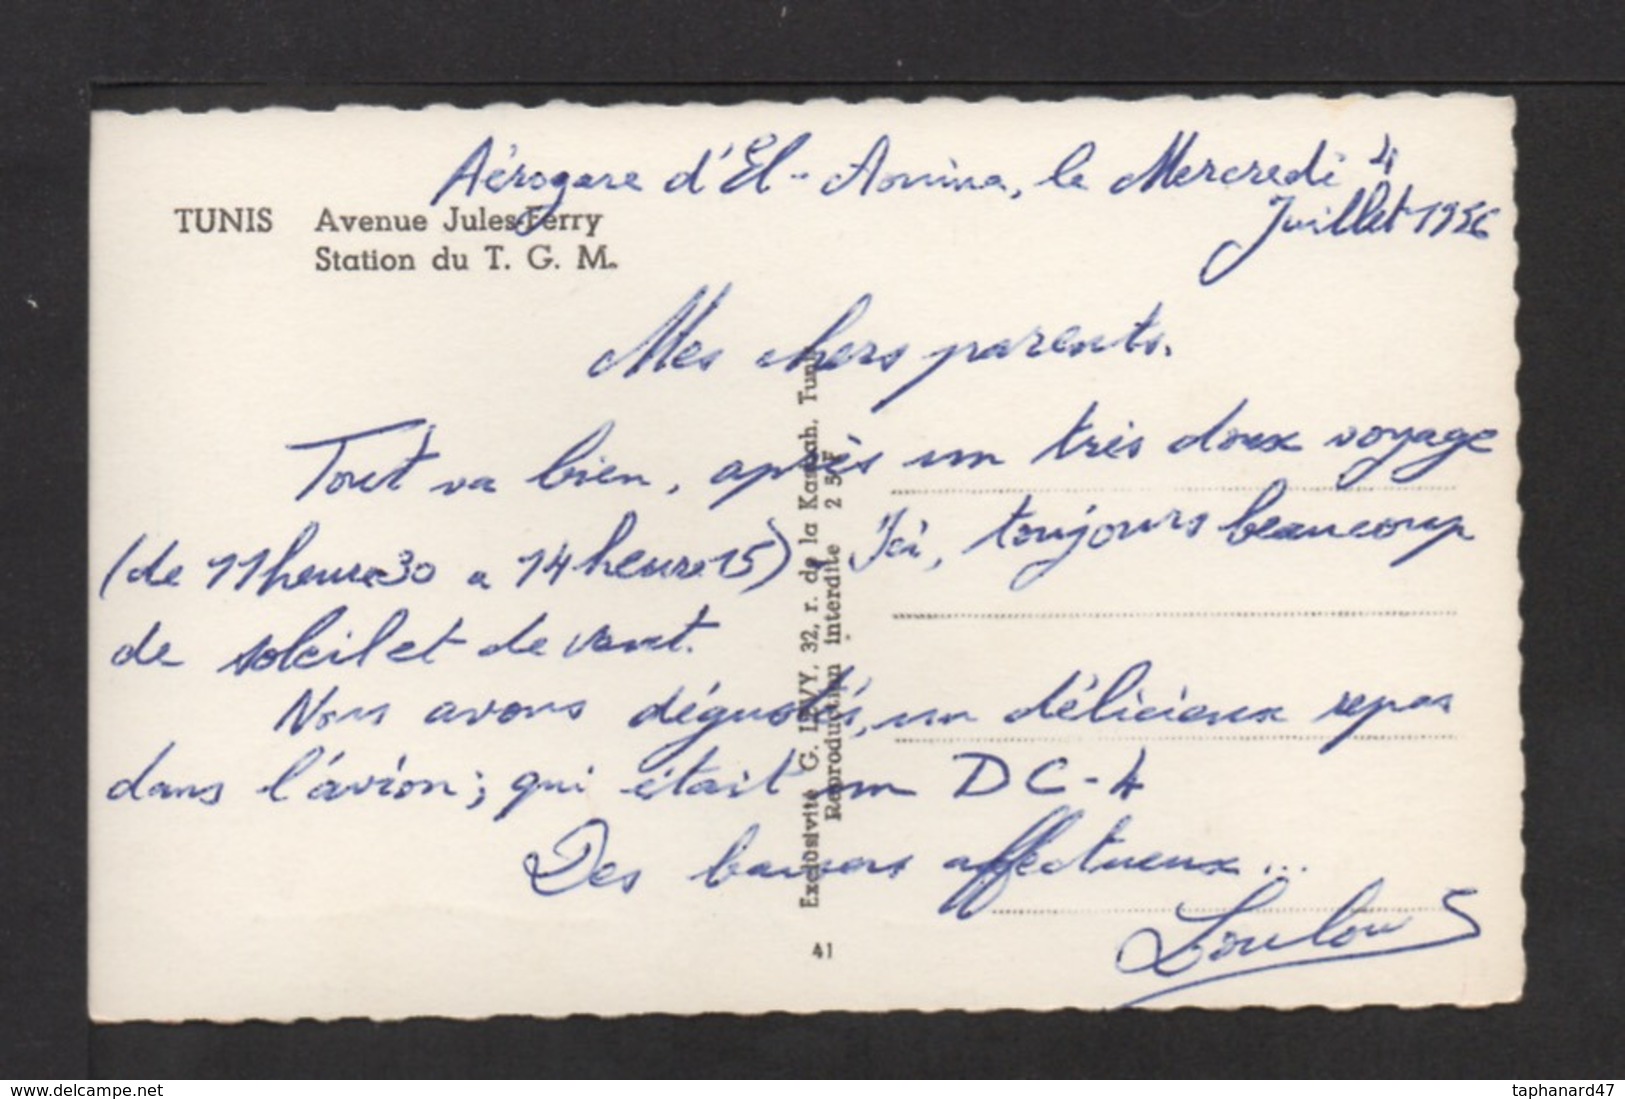 Aérogare d'El-Aouina, le Mercredi 4
Juillet 1956
TUNIS Avenue Jules-Ferry
Station du T. G. M.
Mes chers parents.
Tout va bien, après un très doux voyage
(de 11heure30 a 14heure15). Ici, toujours beaucoup
de soleil et de vent.
Nous avons dégustés, un délicieux repas
dans l'avion; qui était un DC-4
Des baisers affectueux...
Loulou
Exclusivité G. LEVY, 32, r. de la Kasbah, Tunis
Reproduction interdite 2 5 F
41
www.delcampe.net
taphanard47